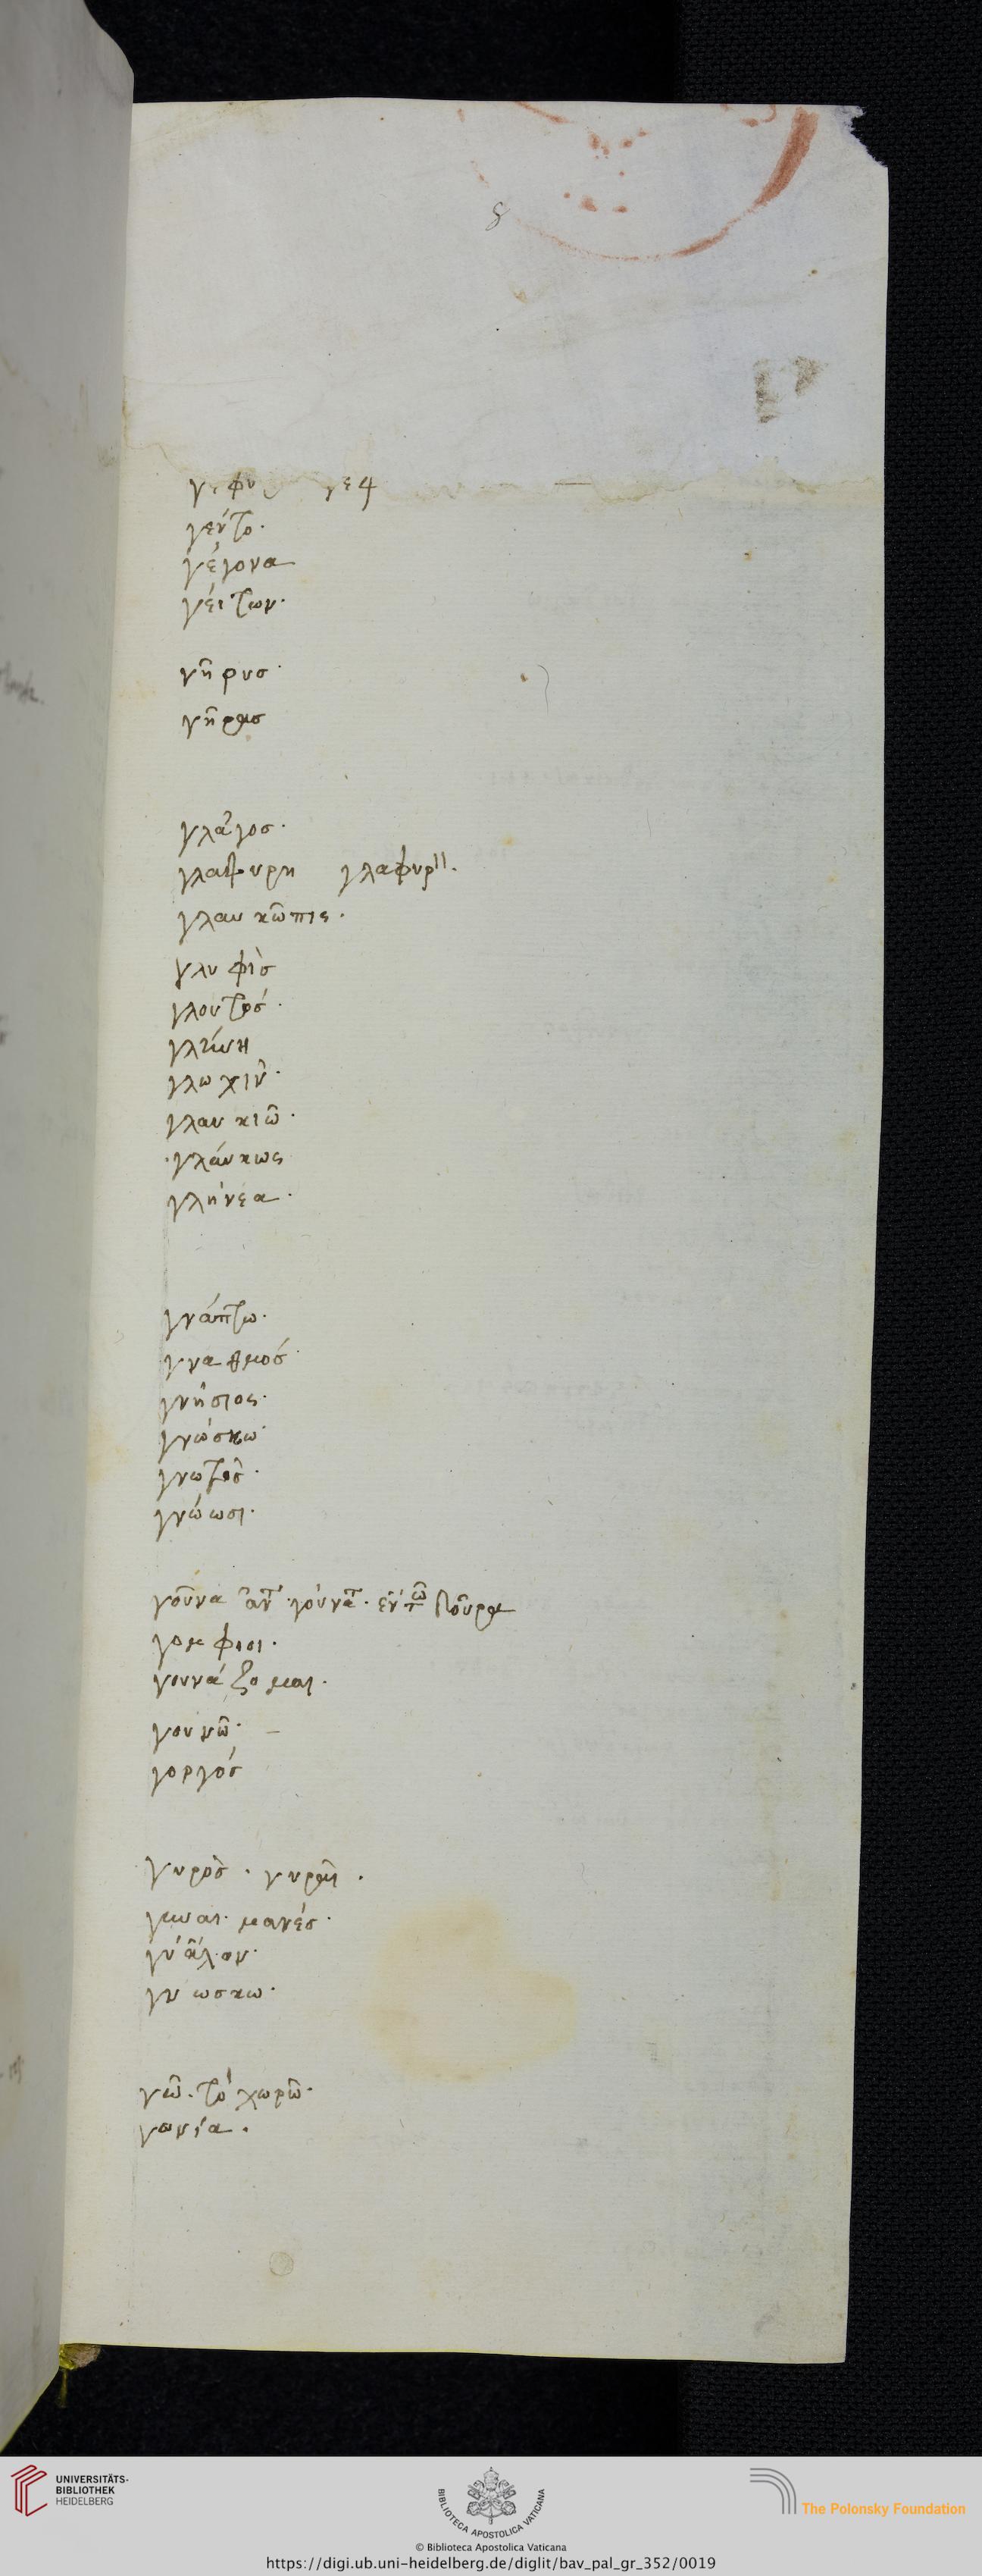 8
γέντο·
γέγονα
γείτων·
γῆρυσ·
γῆρασ
γλάγοσ·
γλαφυρη γλαφυρὴ.
γλαυκῶπις·
γλυφὶσ
γλουτόσ·
γλήνη
γλωχὶν·
γλαυκιῶ·
·γλάυκως
γλήνεα·
γνάπτω·
γναθμόσ·
γνήσιος·
γνώσκω·
γνωτὸσ·
γνώωσι·
γοῦνα γούνατ·
γομφισι·
γουνάζομαι·
γουνῶ· –
γοργόσ
γυρὸσ · γυρὴ ·
γυναι·μανέσ·
γύαλον·
γνωσκω·
γῶ. τὸ χωρῶ·
γωνία.
UNIVERSITÄTS-
BIBLIOTHEK
HEIDELBERG
BIBLIOTECA APOSTOLICA VATICANA
The Polonsky Foundation
© Biblioteca Apostolica Vaticana
https://digi.ub.uni-heidelberg.de/diglit/bav_pal_gr_352/0019